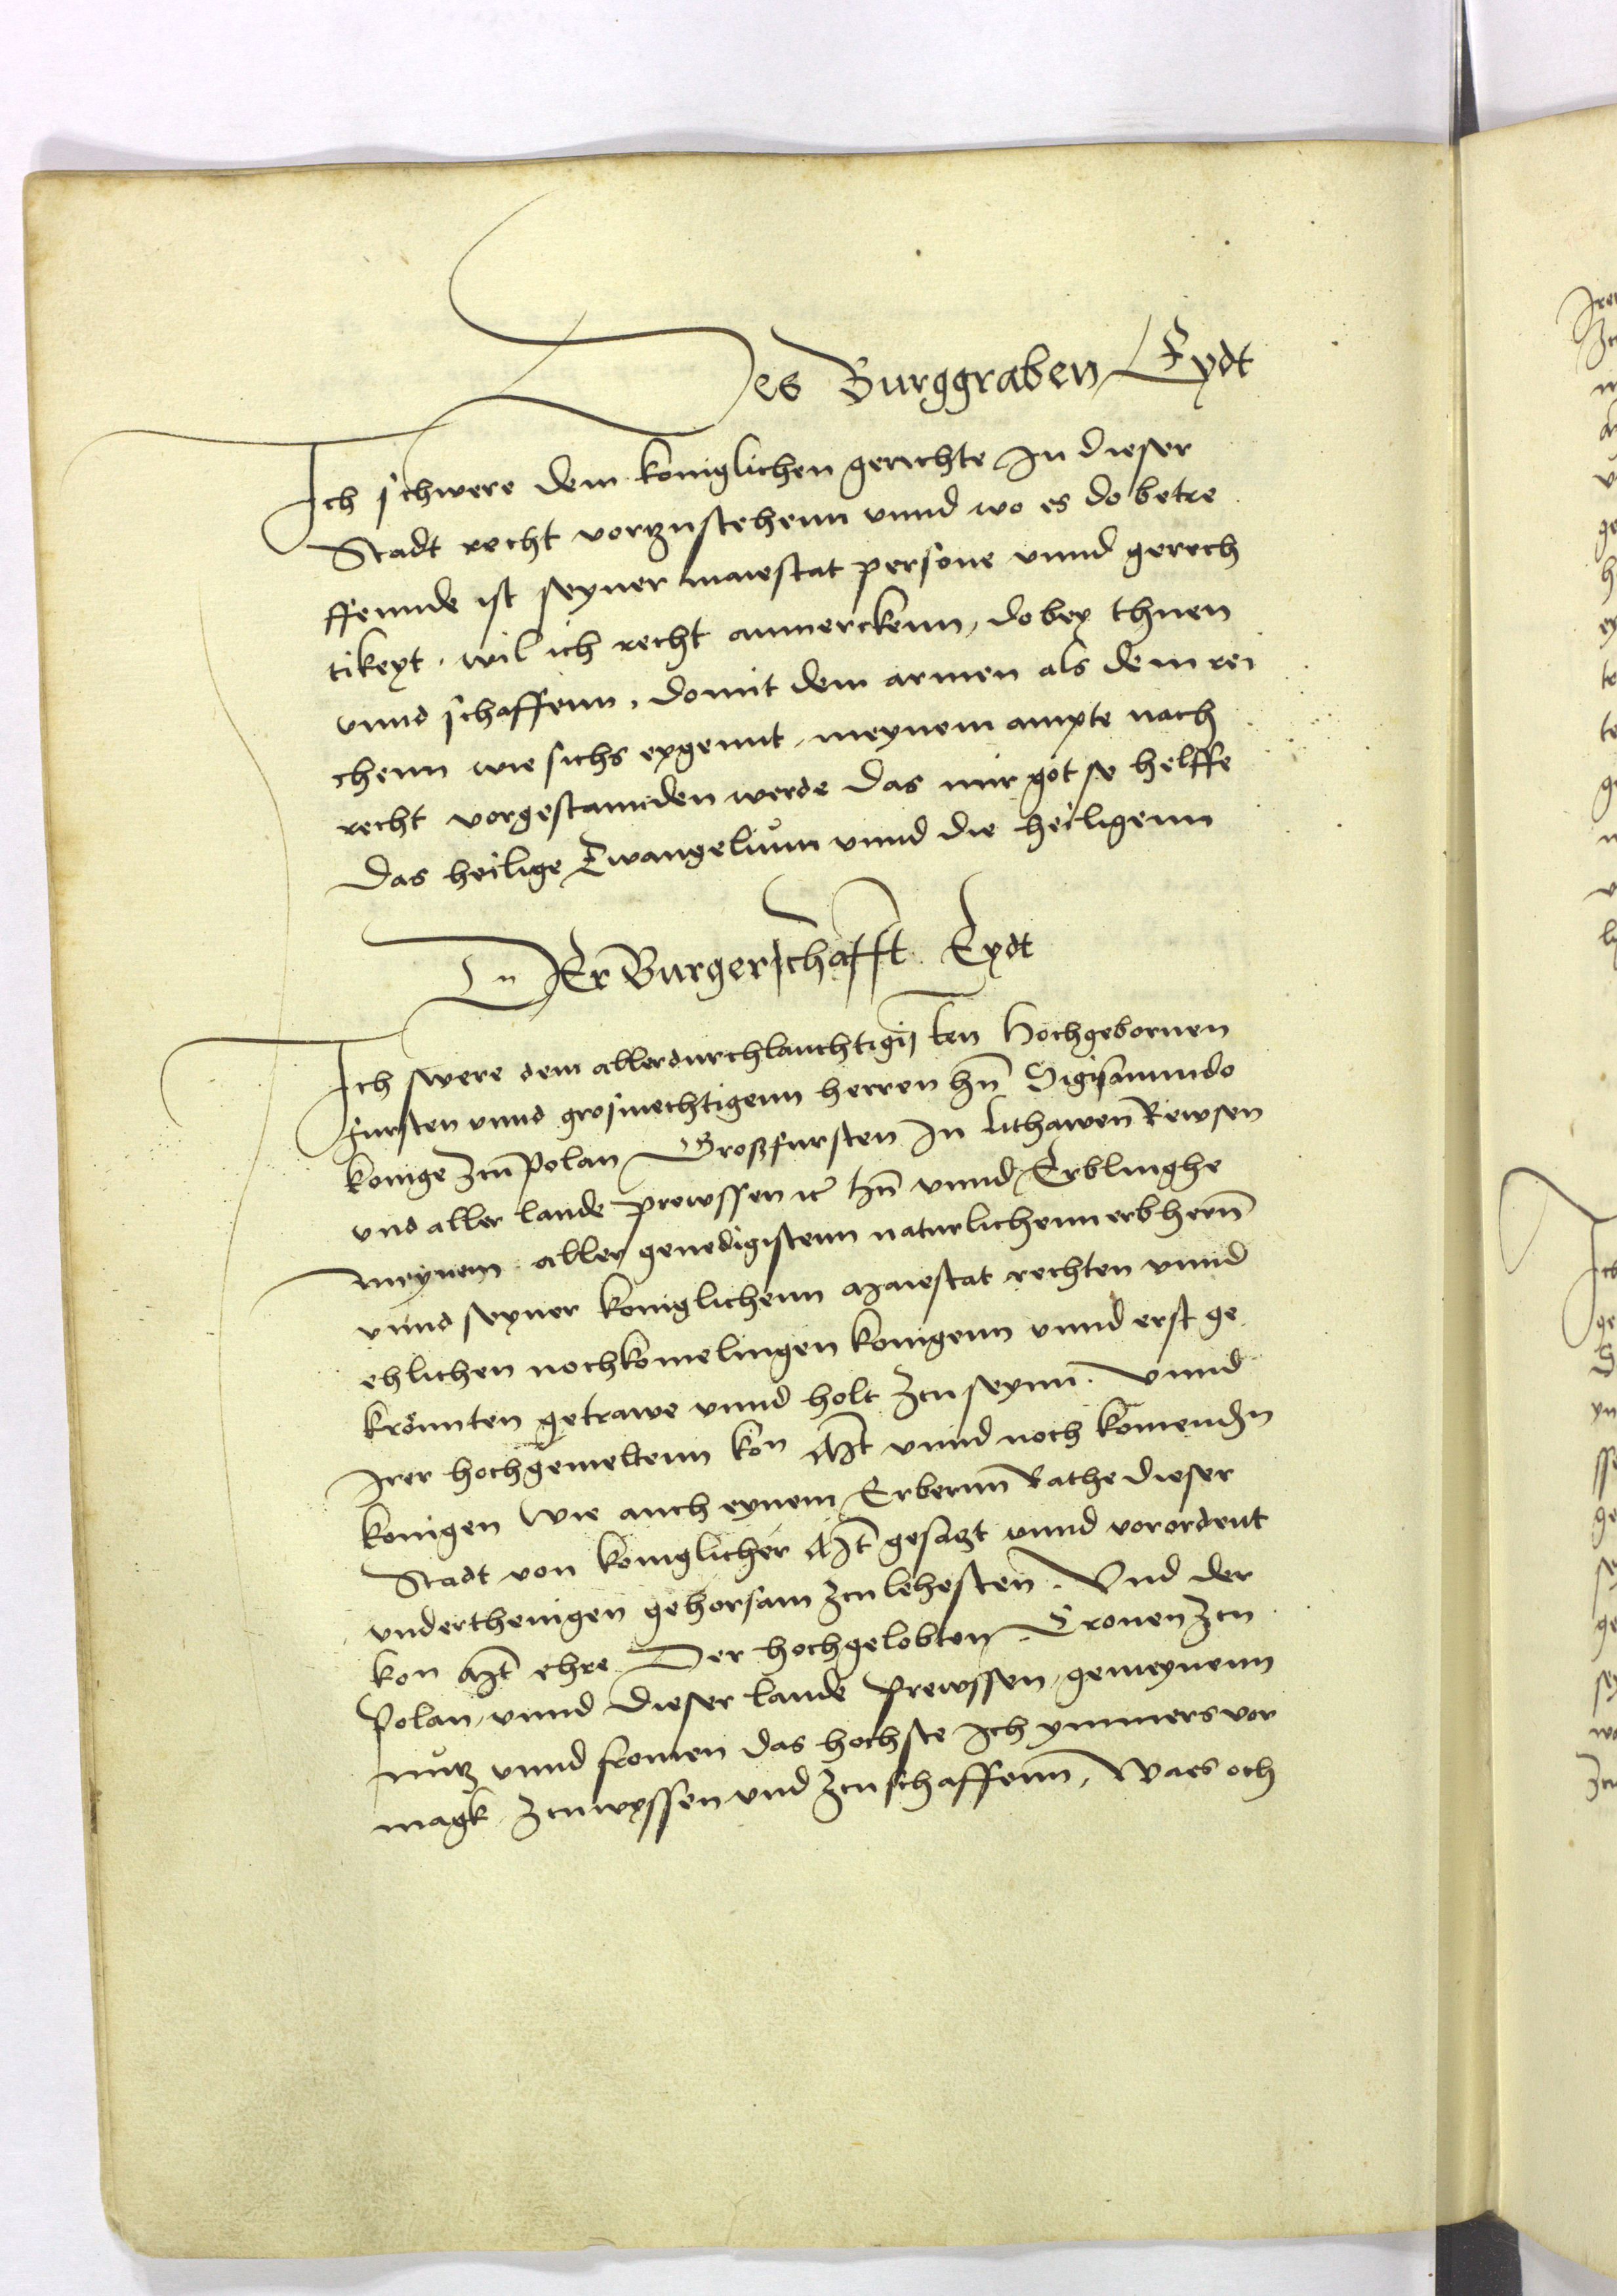 Des Burggraben Eydt
Ich schwere dem koniglichen gerichte In dieser
Stadt recht vorzustehenn vnnd wo es do betre
ffennde ist seyner maiestat persone vnnd gerech
tikeyt. wil ich recht anmerckenn, dobey thuen
vnnd schaffenn, domit dem armen als dem rei
chenn wie sichs eygennt, meynem ampte nach
recht vorgestannden werde das mir got so helffe
das heilige Ewangelium vnnd die heiligenn
Der Burgerschafft Eydt
Ich swere dem allerdurchlauchtigisten Hochgebornen
fursten vnnd grosmechtigenn herren hn̄ Sigismundo
konige zcu Polan Großfursten In Lithawen Rewsen
vnd aller lande prewssen ꝛc hn̄ vnnd Erblinghe
meynem aller genedigistenn naturlichenn erbhern̄
vnnd seyner koniglichenn Maiestat rechten vnnd
ehlichen nochkomelingen konigenn vnnd erst ge
kronnten getrawe vnnd holt zcu seynn. Vnnd
Irer hochgemeltenn kon Mt vnnd noch komenden
konigen Wie auch eynem Erbernn Rathe dieser
Stadt von koniglicher Mt gesatzt vnnd vorordent
vnderthenigen gehorsam zcu lehesten. Vnd der
kon Mt ehre Der hochgelobten Cronen zcu
Polan, vnnd dieser lande Prewssen, gemeynenn
nutz vnnd fromen das hochste ich ymmers vor
magk zcu wyssen vnd zcu schaffenn, Waes och